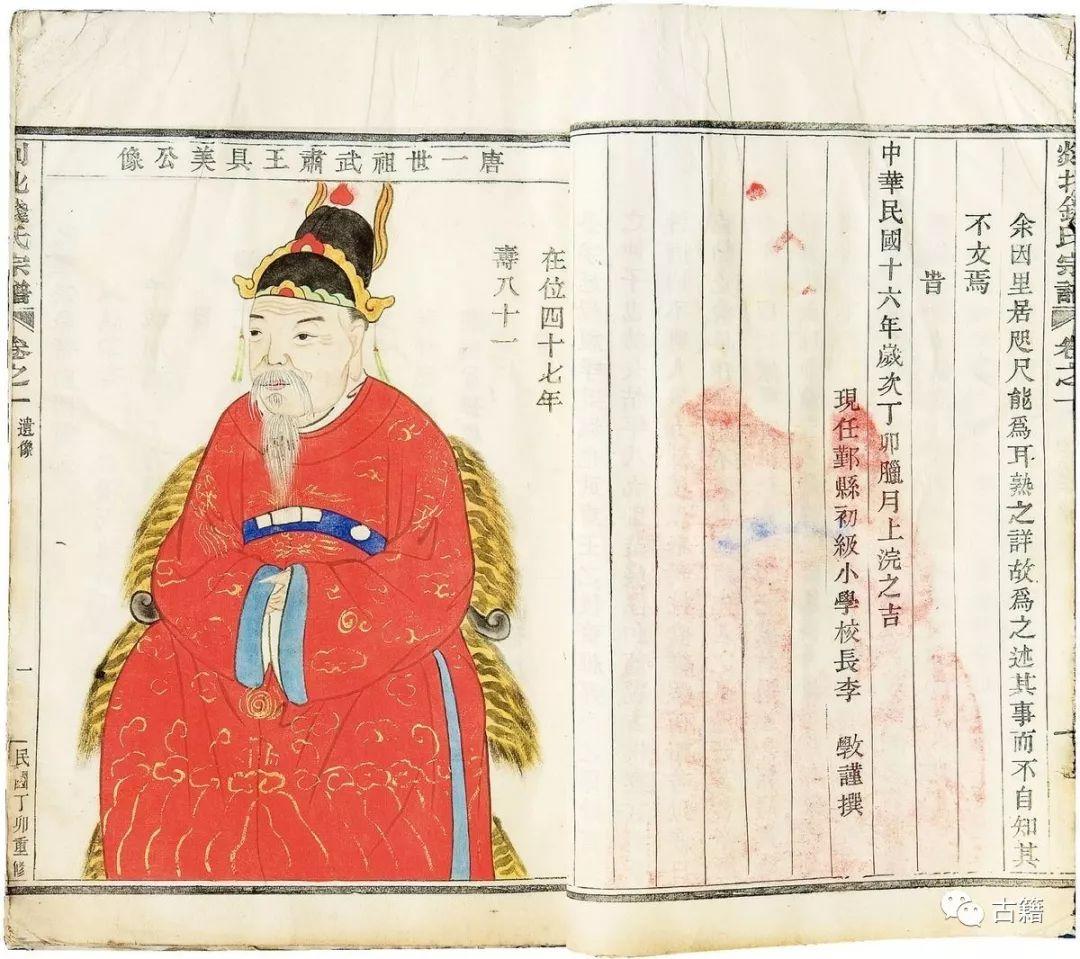 氏宗譜 卷之一
余因里居咫尺能爲耳熟之詳故爲之述其事而不自知其
不文焉
旹
中華民國十六年歲次丁卯臘月上浣之吉
現任鄞縣初級小學校長李 斆謹撰
唐一世祖武肅王具美公像
在位四十七年
壽八十一
北錢氏宗譜 卷之一 遺像 一 民國丁卯重修
古籍